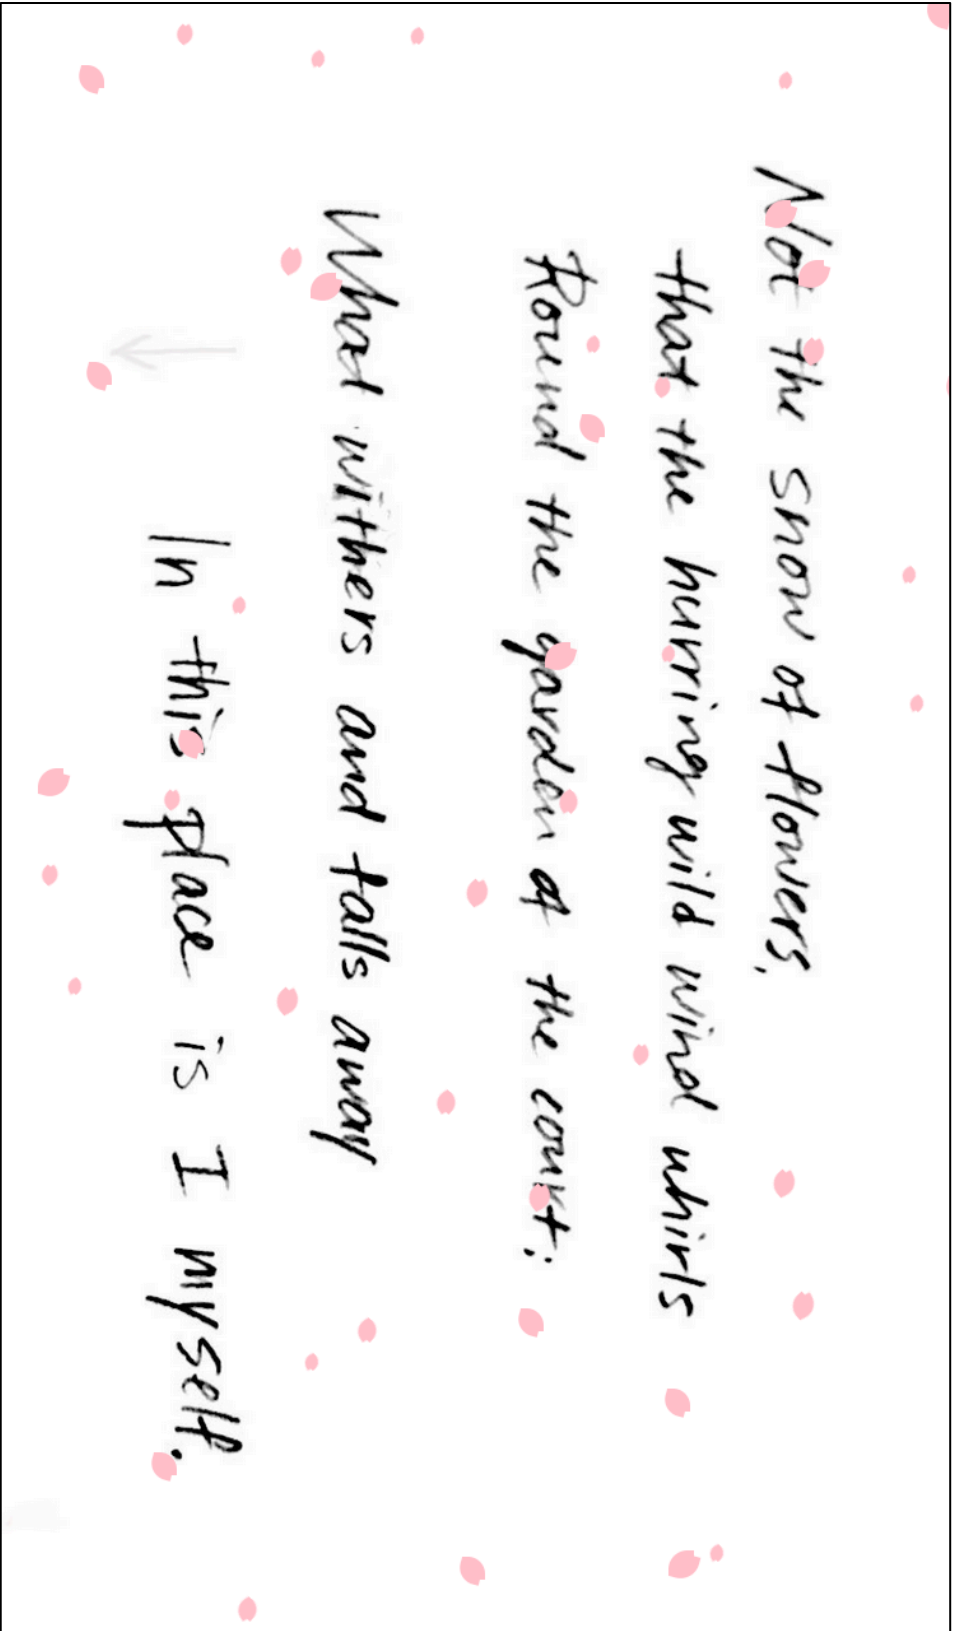 Not the snow of flowers,
that the hurring wild wind whirls
Round the garden of the court:
What withers and falls away
In this place is I myself.